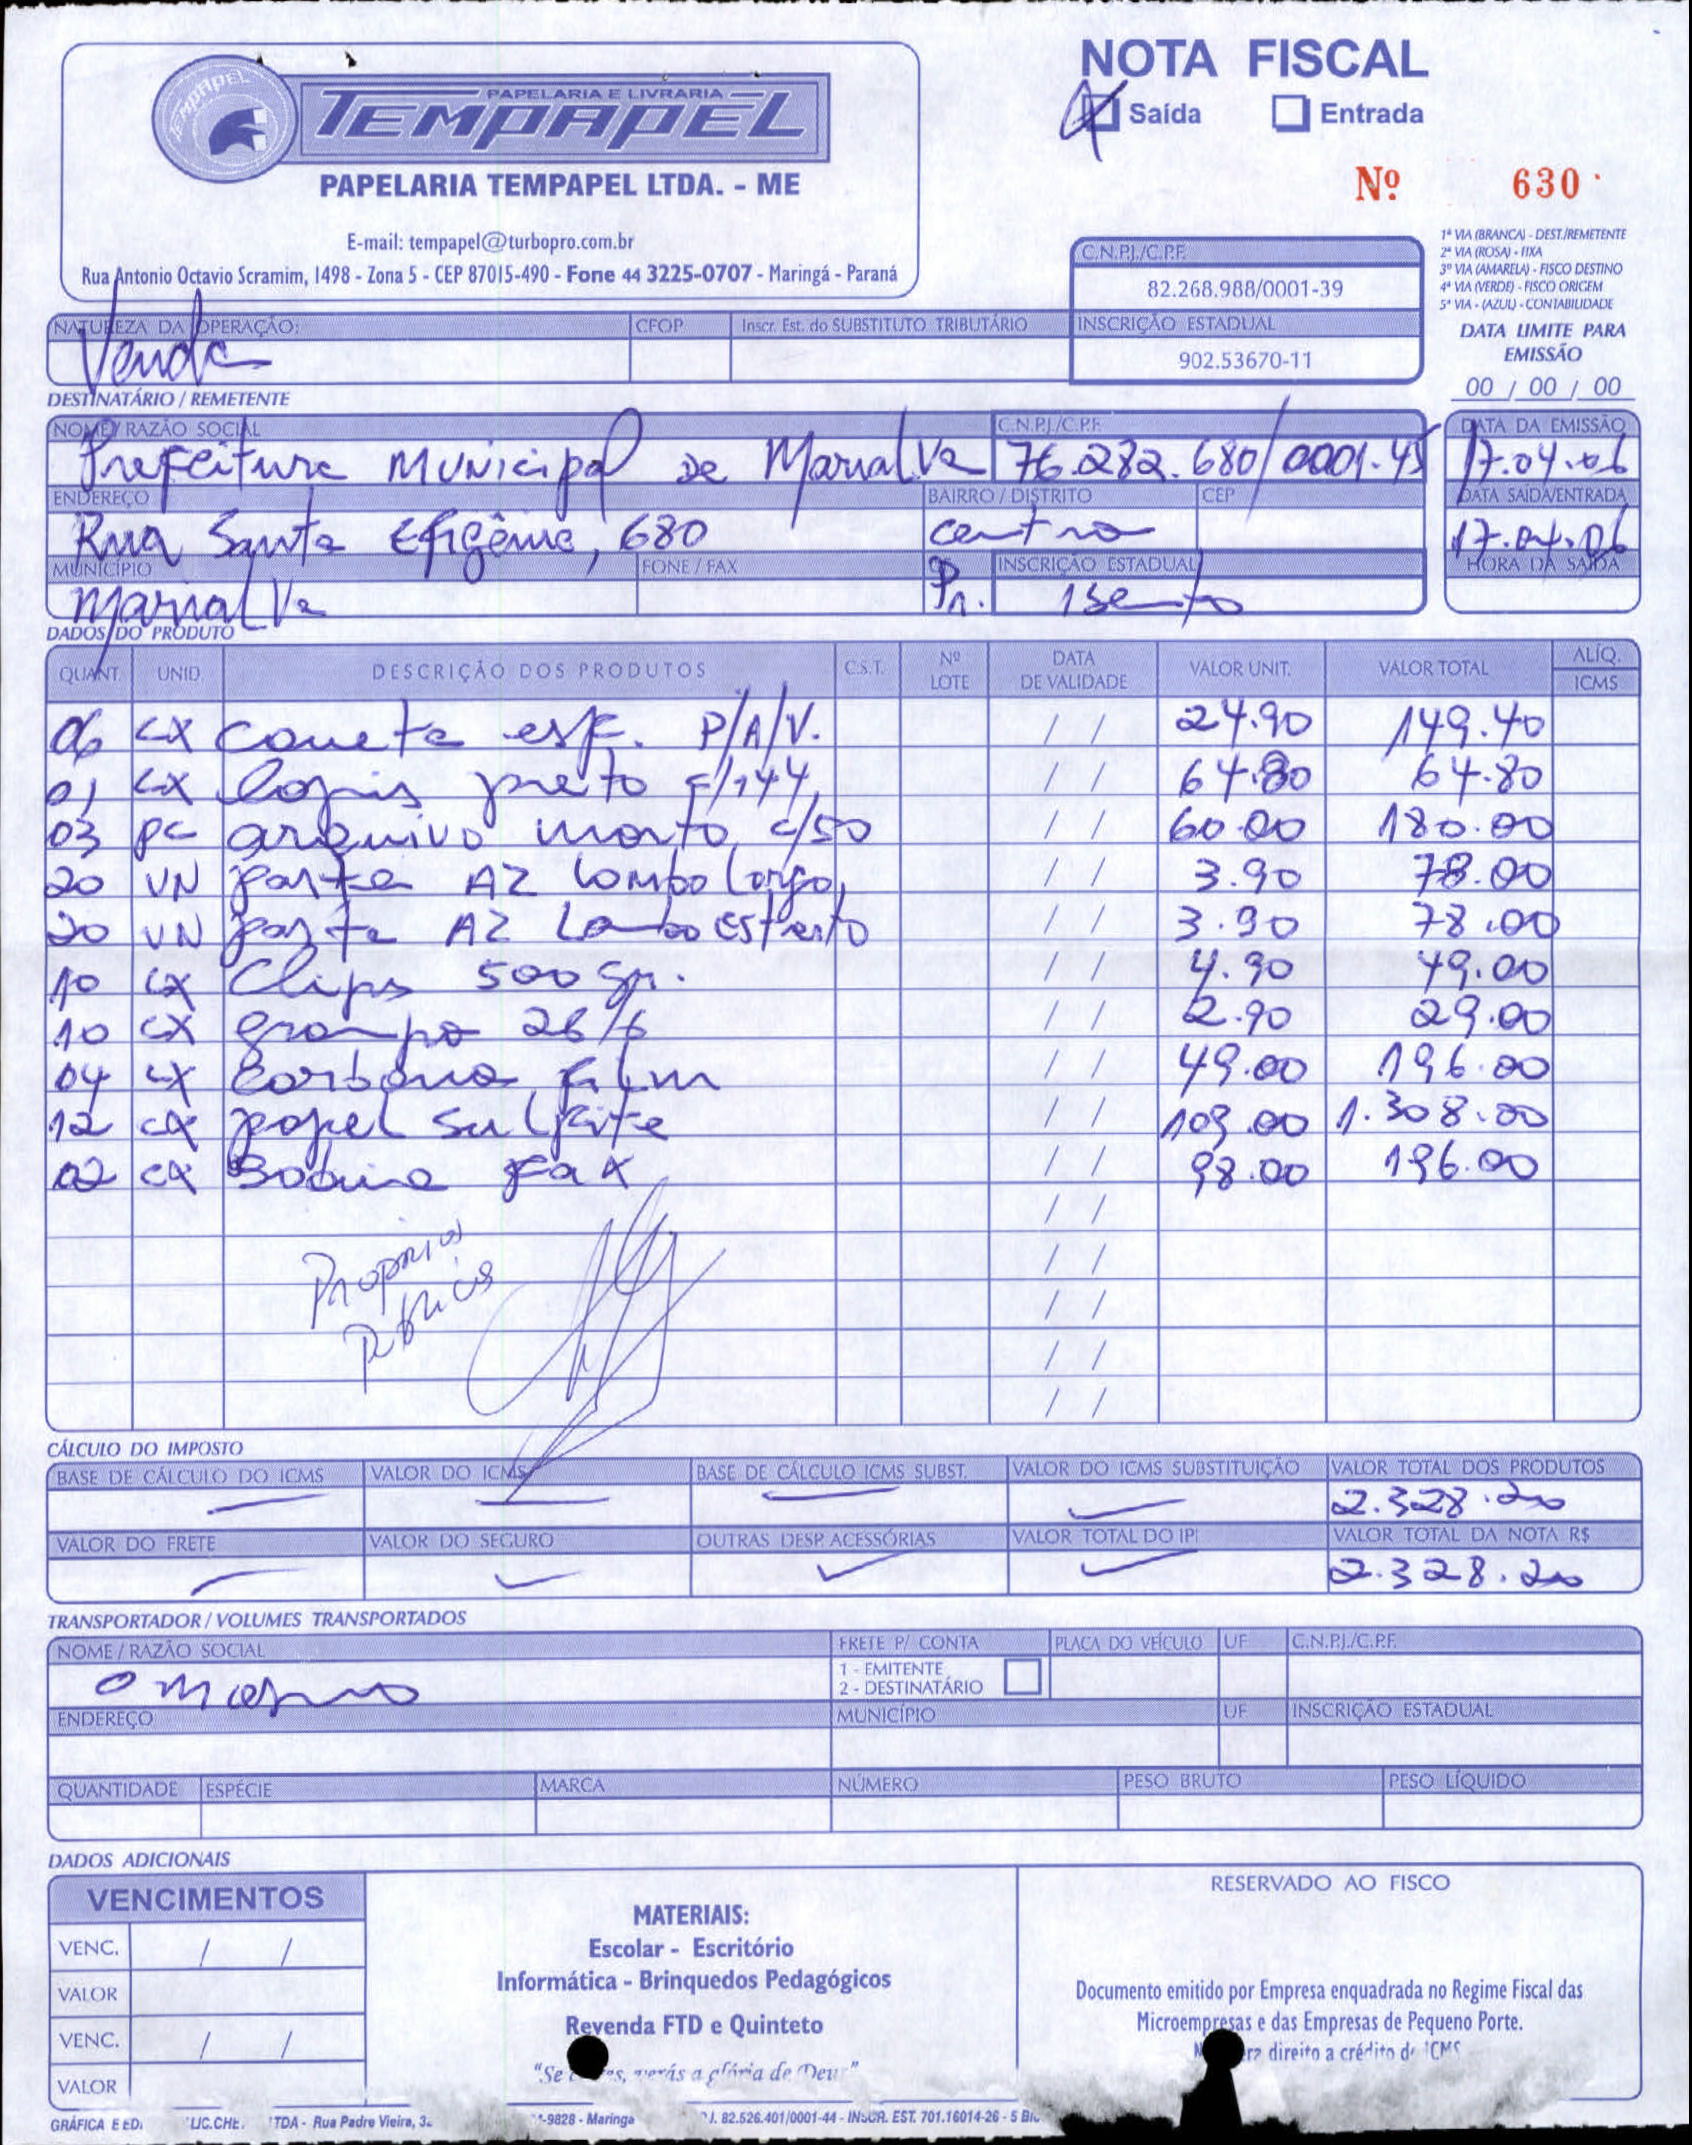 NOTA FISCAL
Saída Entrada
TEMPAPEL
PAPELARIA E LIVRARIA
TEMPAPEL
PAPELARIA TEMPAPEL LTDA. - ME
Nº 630
E-mail: tempapel@turbopro.com.br
Rua Antonio Octavio Scramim, 1498 - Zona 5 - CEP 87015-490 - Fone 44 3225-0707 - Maringá - Paraná
1ª VIA (BRANCA) - DEST./REMETENTE
2ª VIA (ROSA) - FIXA
3ª VIA (AMARELA) - FISCO DESTINO
4ª VIA (VERDE) - FISCO ORIGEM
5ª VIA - (AZUL) - CONTABILIDADE
C.N.P.J./C.P.F.
82.268.988/0001-39
NATUREZA DA OPERAÇÃO: CFOP Inscr. Est. do SUBSTITUTO TRIBUTÁRIO INSCRIÇÃO ESTADUAL
Venda 902.53670-11
DATA LIMITE PARA
EMISSÃO
00 / 00 / 00
DESTINATÁRIO / REMETENTE
NOME / RAZÃO SOCIAL C.N.P.J./C.P.F. DATA DA EMISSÃO
Prefeitura Municipal de Marialva 76.282.680/0001-45 17.04.06
ENDEREÇO BAIRRO / DISTRITO CEP DATA SAÍDA/ENTRADA
Rua Santa Efigênia, 680 centro 17.04.06
MUNICÍPIO FONE / FAX INSCRIÇÃO ESTADUAL HORA DA SAÍDA
Marialva Pr. Isento
DADOS DO PRODUTO
QUANT. UNID. DESCRIÇÃO DOS PRODUTOS C.S.T. Nº LOTE DATA DE VALIDADE VALOR UNIT. VALOR TOTAL ALÍQ. ICMS
06 cx caneta esf. P/A/V. / / 24.90 149.40
01 cx lapis preto c/144 / / 64.80 64.80
03 pc arquivo morto c/50 / / 60.00 180.00
20 UN pasta AZ lombo largo / / 3.90 78.00
20 UN pasta AZ Lombo Estreito / / 3.90 78.00
10 cx Clips 500 gr. / / 4.90 49.00
10 cx grampo 26/6 / / 2.90 29.00
04 cx Carbono film / / 49.00 196.00
12 cx papel sulfite / / 109.00 1.308.00
02 cx Bobina fax / / 98.00 196.00
/ /
/ /
/ /
/ /
/ /
Proprios
Publicos
CÁLCULO DO IMPOSTO
BASE DE CÁLCULO DO ICMS VALOR DO ICMS BASE DE CÁLCULO ICMS SUBST. VALOR DO ICMS SUBSTITUIÇÃO VALOR TOTAL DOS PRODUTOS
2.328.20
VALOR DO FRETE VALOR DO SEGURO OUTRAS DESP. ACESSÓRIAS VALOR TOTAL DO IPI VALOR TOTAL DA NOTA R$
2.328.20
TRANSPORTADOR / VOLUMES TRANSPORTADOS
NOME / RAZÃO SOCIAL FRETE P/ CONTA PLACA DO VEÍCULO UF C.N.P.J./C.P.F.
o mesmo 1 - EMITENTE
2 - DESTINATÁRIO
ENDEREÇO MUNICÍPIO UF INSCRIÇÃO ESTADUAL
QUANTIDADE ESPÉCIE MARCA NÚMERO PESO BRUTO PESO LÍQUIDO
DADOS ADICIONAIS
VENCIMENTOS
VENC. / /
VALOR
VENC. / /
VALOR
MATERIAIS:
Escolar - Escritório
Informática - Brinquedos Pedagógicos
Revenda FTD e Quinteto
"Se verás a glória de Deus"
RESERVADO AO FISCO
Documento emitido por Empresa enquadrada no Regime Fiscal das
Microempresas e das Empresas de Pequeno Porte.
direito a crédito de ICMS
GRÁFICA E LTDA - Rua Padre Vieira, -9828 - Maringa 82.526.401/0001-44 - INSCR. EST. 701.16014-26 - 5